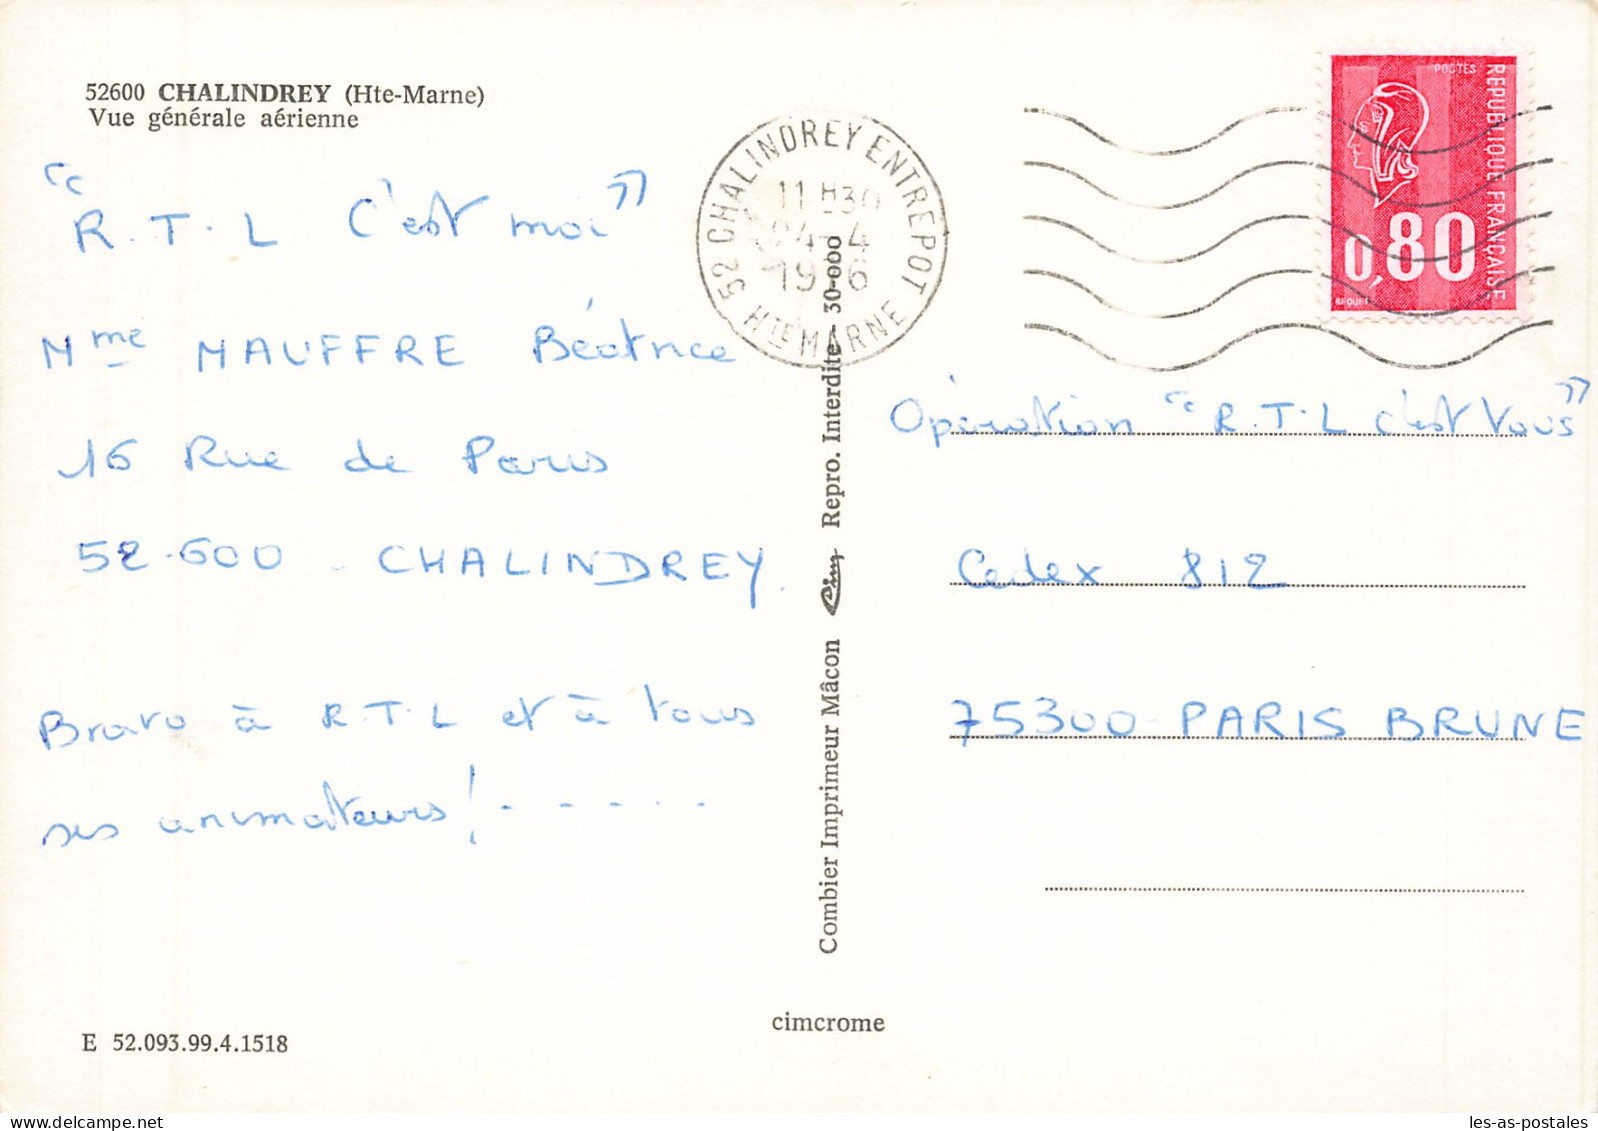 52600 CHALINDREY (Hte-Marne)
Vue générale aérienne
"R.T.L C'est moi"
Mme MAUFFRE Béatrice
16 Rue de Paris
52.600 - CHALINDREY.
Bravo à R.T.L et à tous
ses animateurs! - - - - -
E 52.093.99.4.1518
52 CHALINDREY ENTREPOT
HTE MARNE
11H30
4
1976
Combier Imprimeur Mâcon Cim Repro. Interdite 30-000
cimcrome
POSTES
REPUBLIQUE FRANÇAISE
0,80
BEQUET
Opération "R.T.L c'est Vous"
Cedex 812
75300 PARIS BRUNE
les-as-postales